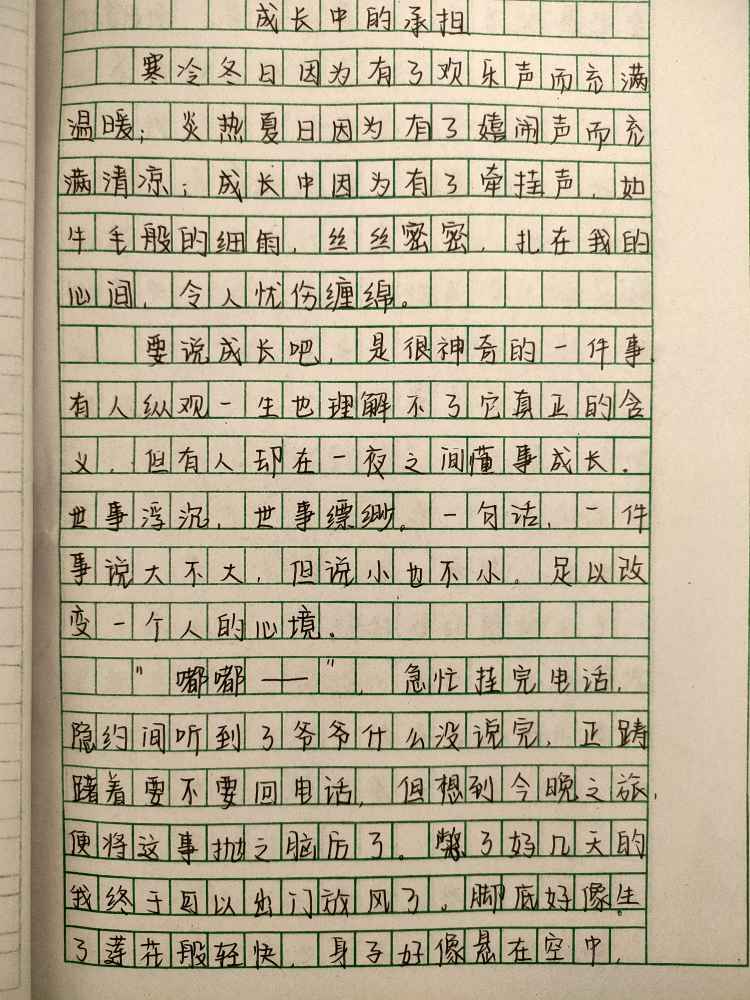 成长中的承担
寒冷冬日因为有了欢乐声而充满
温暖；炎热夏日因为有了嬉闹声而充
满清凉；成长中因为有了牵挂声，如
牛毛般的细雨，丝丝密密，扎在我的
心间，令人忧伤缠绵。
要说成长吧，是很神奇的一件事，
有人纵观一生也理解不了它真正的含
义，但有人却在一夜之间懂事成长。
世事浮沉，世事缥缈。一句话，一件
事说大不大，但说小也不小，足以改
变一个人的心境。
“嘟嘟——”，急忙挂完电话，
隐约间听到了爷爷什么没说完，正踌
躇着要不要回电话，但想到今晚之旅，
便将这事抛之脑后了。憋了好几天的
我终于可以出门放风了，脚底好像生
了莲花般轻快，身子好像悬在空中，